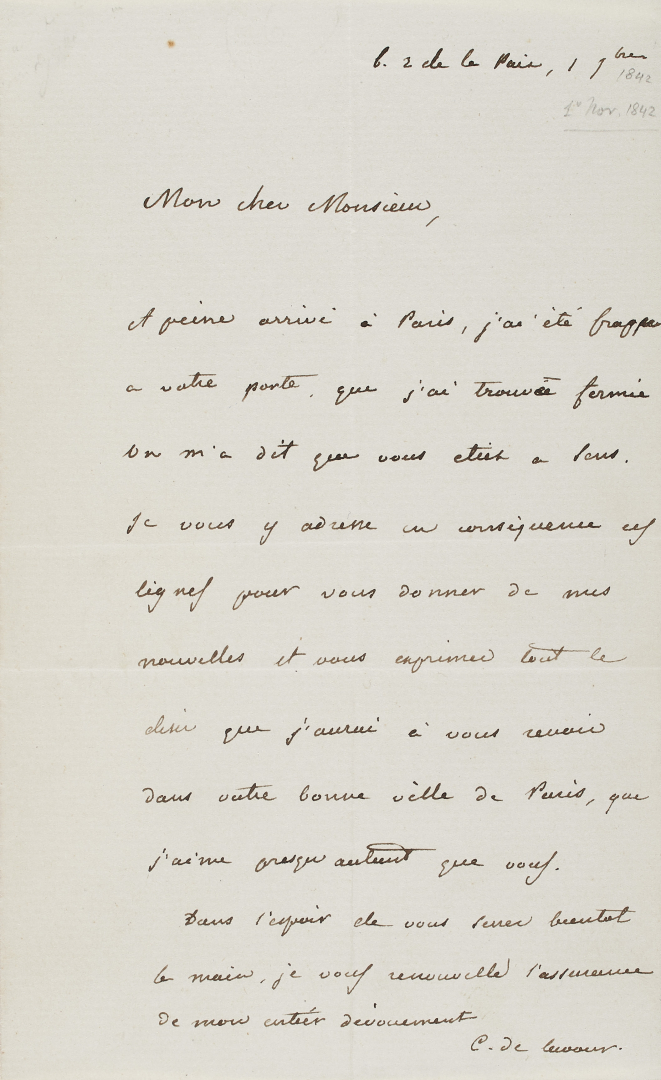 6. r de la Paix, 1 9bre
1842
1er Nov. 1842
Mon cher Monsieur,
A peine arrivé à Paris, j'ai été frapper
a votre porte, que j'ai trouvée fermée
On m'a dit que vous etiez a Sens.
Je vous y adresse en conséquence ces
lignes pour vous donner de mes
nouvelles et vous exprimer tout le
desir que j'aurai à vous revoir
dans votre bonne ville de Paris, que
j'aime presqu'autant que vous.
Dans l'espoir de vous serrer bientot
la main, je vous renouvelle l'assurance
de mon entier dévouement
C. de Cavour.